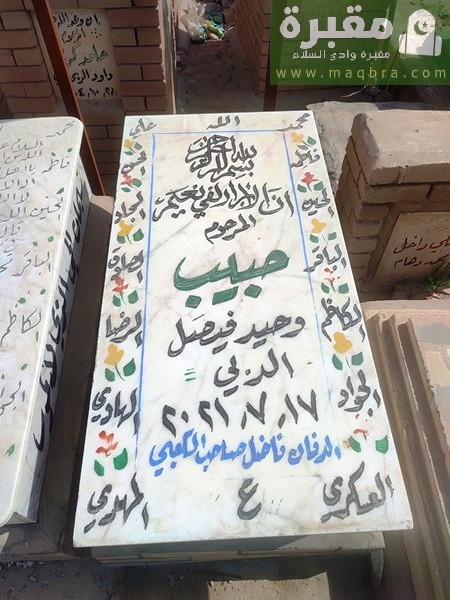 مقبرة
مقبرة وادي السلام
www.maqbra.com
محمد الله علي
بسم الله الرحمن الرحيم
ان الابرار لفي نعيم
المرحوم
حبيب
وحيد فيصل
الدبي
٢٠٢١/٧/١٧
الدفان فاضل صاحب الكعبي
فاطمة
الحسين
الباقر
الكاظم
الجواد
العسكري
ع
الحسن
السجاد
الصادق
الرضا
الهادي
المهدي
محمد
فاطمة
الباقر
الكاظم